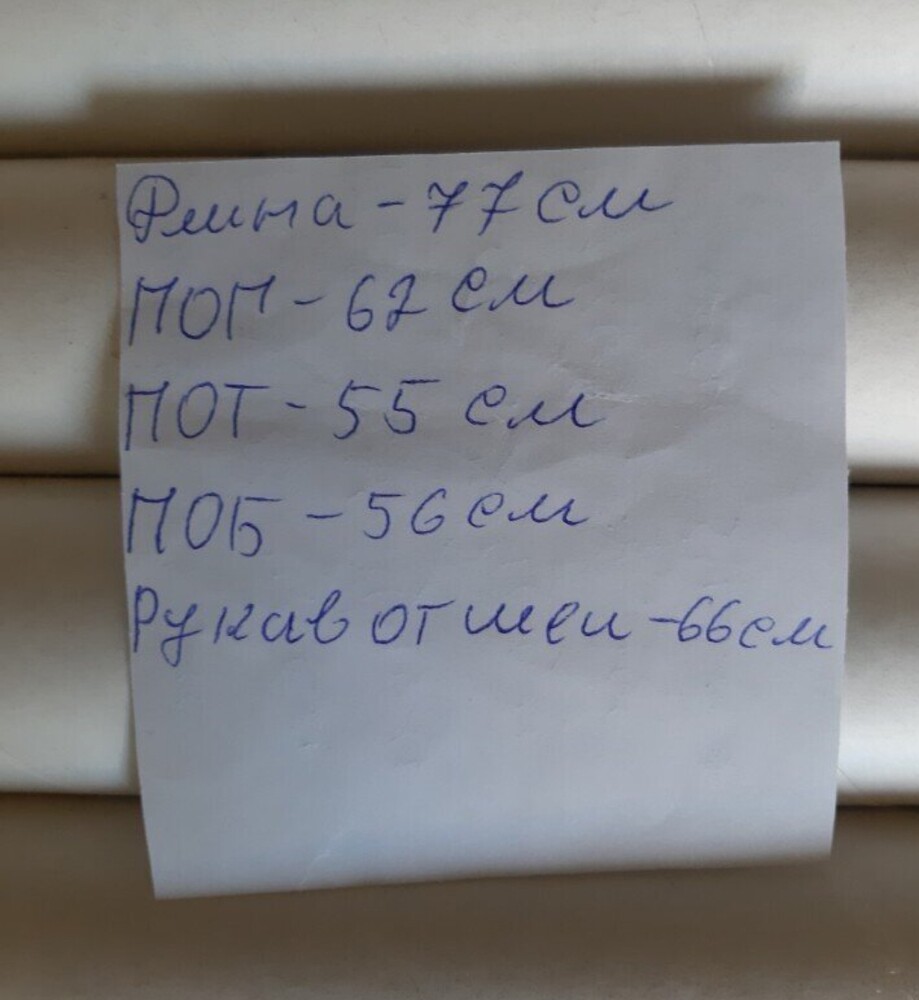 Длина - 77 см
ПОП - 62 см
ПОТ - 55 см
ПОБ - 56 см
Рукав от шеи - 66 см